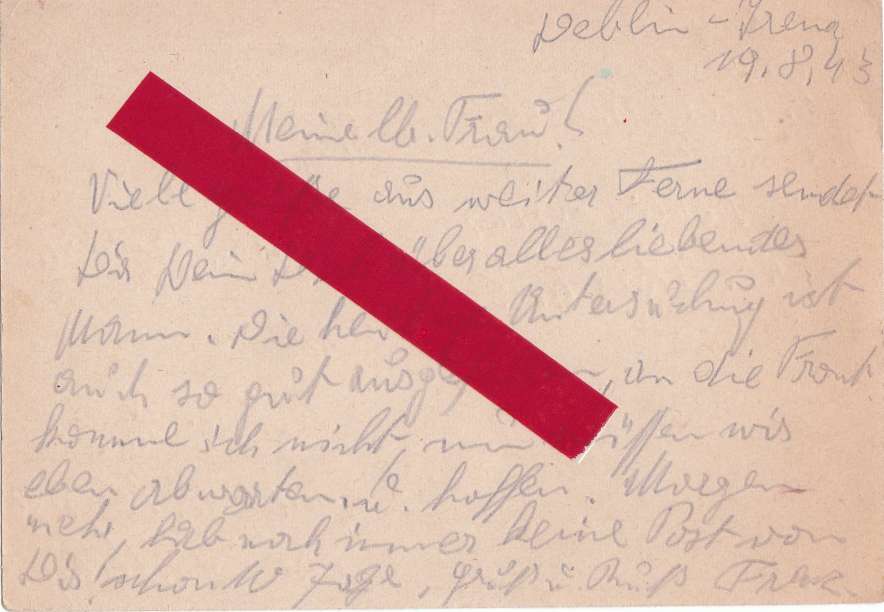 Deblin - Irena
19.8.43
Meine lb. Frau!
Viele aus weiter Ferne sendet
Dir Dein über alles liebender
Mann. Die Untersuchung ist
auch so gut, an die Front
komme ich nicht, nun müssen wir
eben abwarten u. hoffen. Morgen
mehr, hab noch immer keine Post von
Dir! schon 10 Tage, Gruß u. Kuß Franz